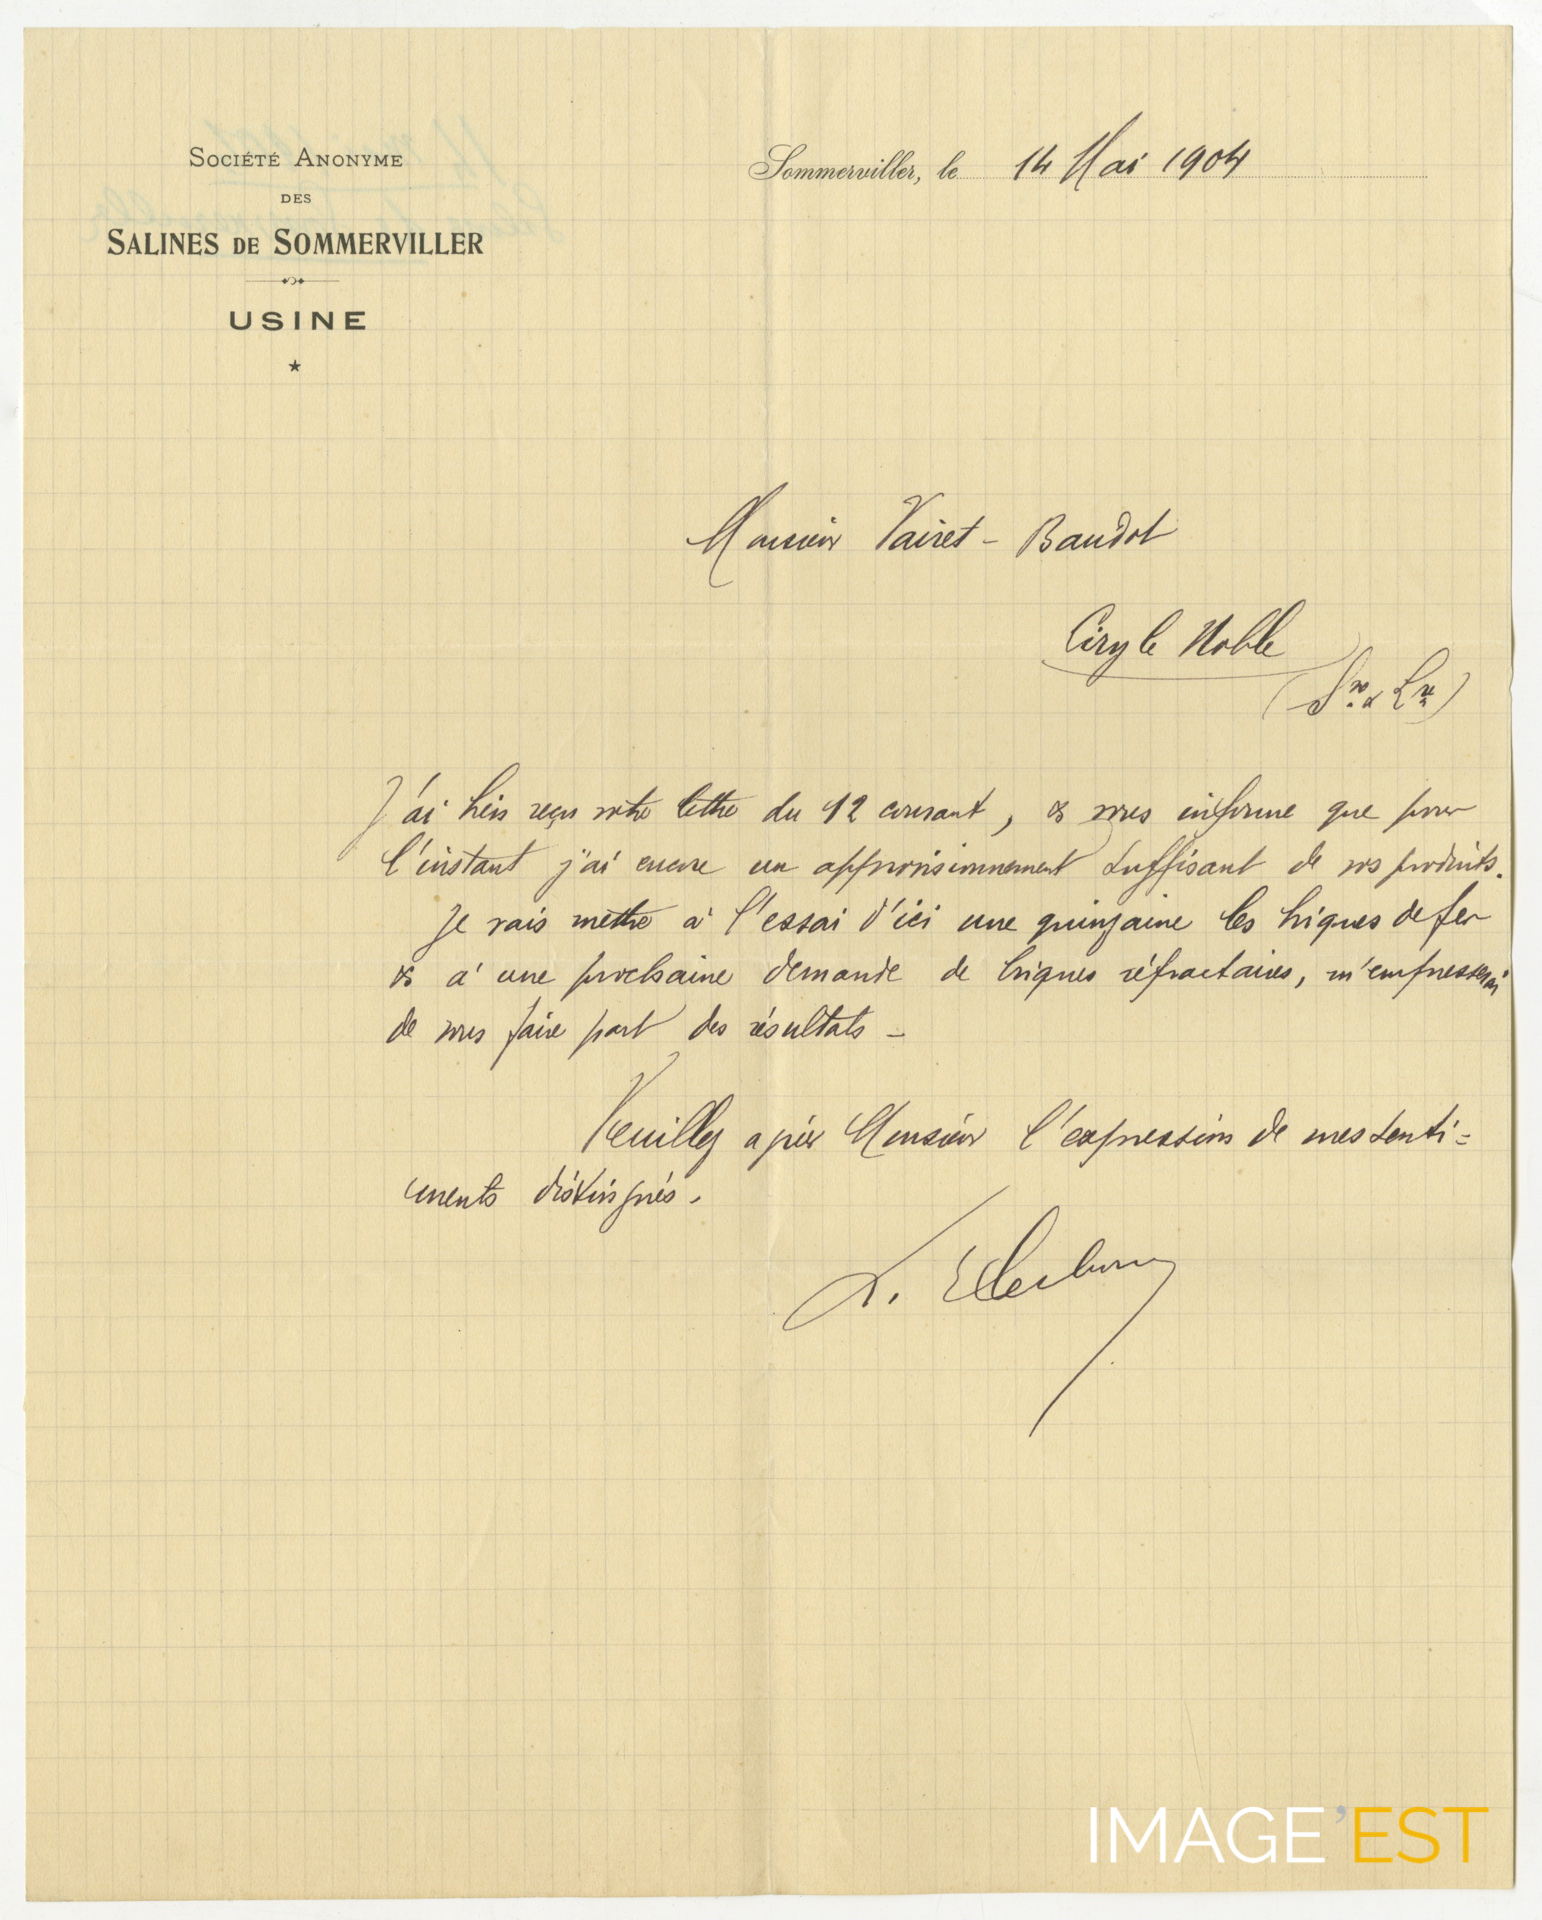 SOCIÉTÉ ANONYME
DES
SALINES DE SOMMERVILLER
USINE
Sommerviller, le 14 Mai 1904
Monsieur Vairet - Baudot
Ciry le Noble
(Sne & Lre)
J'ai bien reçu votre lettre du 12 courant, & vous informe que pour
l'instant j'ai encore un approvisionnement suffisant de vos produits.
Je vais mettre à l'essai d'ici une quinzaine les briques de fer
& à une prochaine demande de briques réfractaires, m'empresserai
de vous faire part des résultats -
Veuillez agréer Monsieur l'expression de mes senti=
ments distingués.
IMAGE'EST